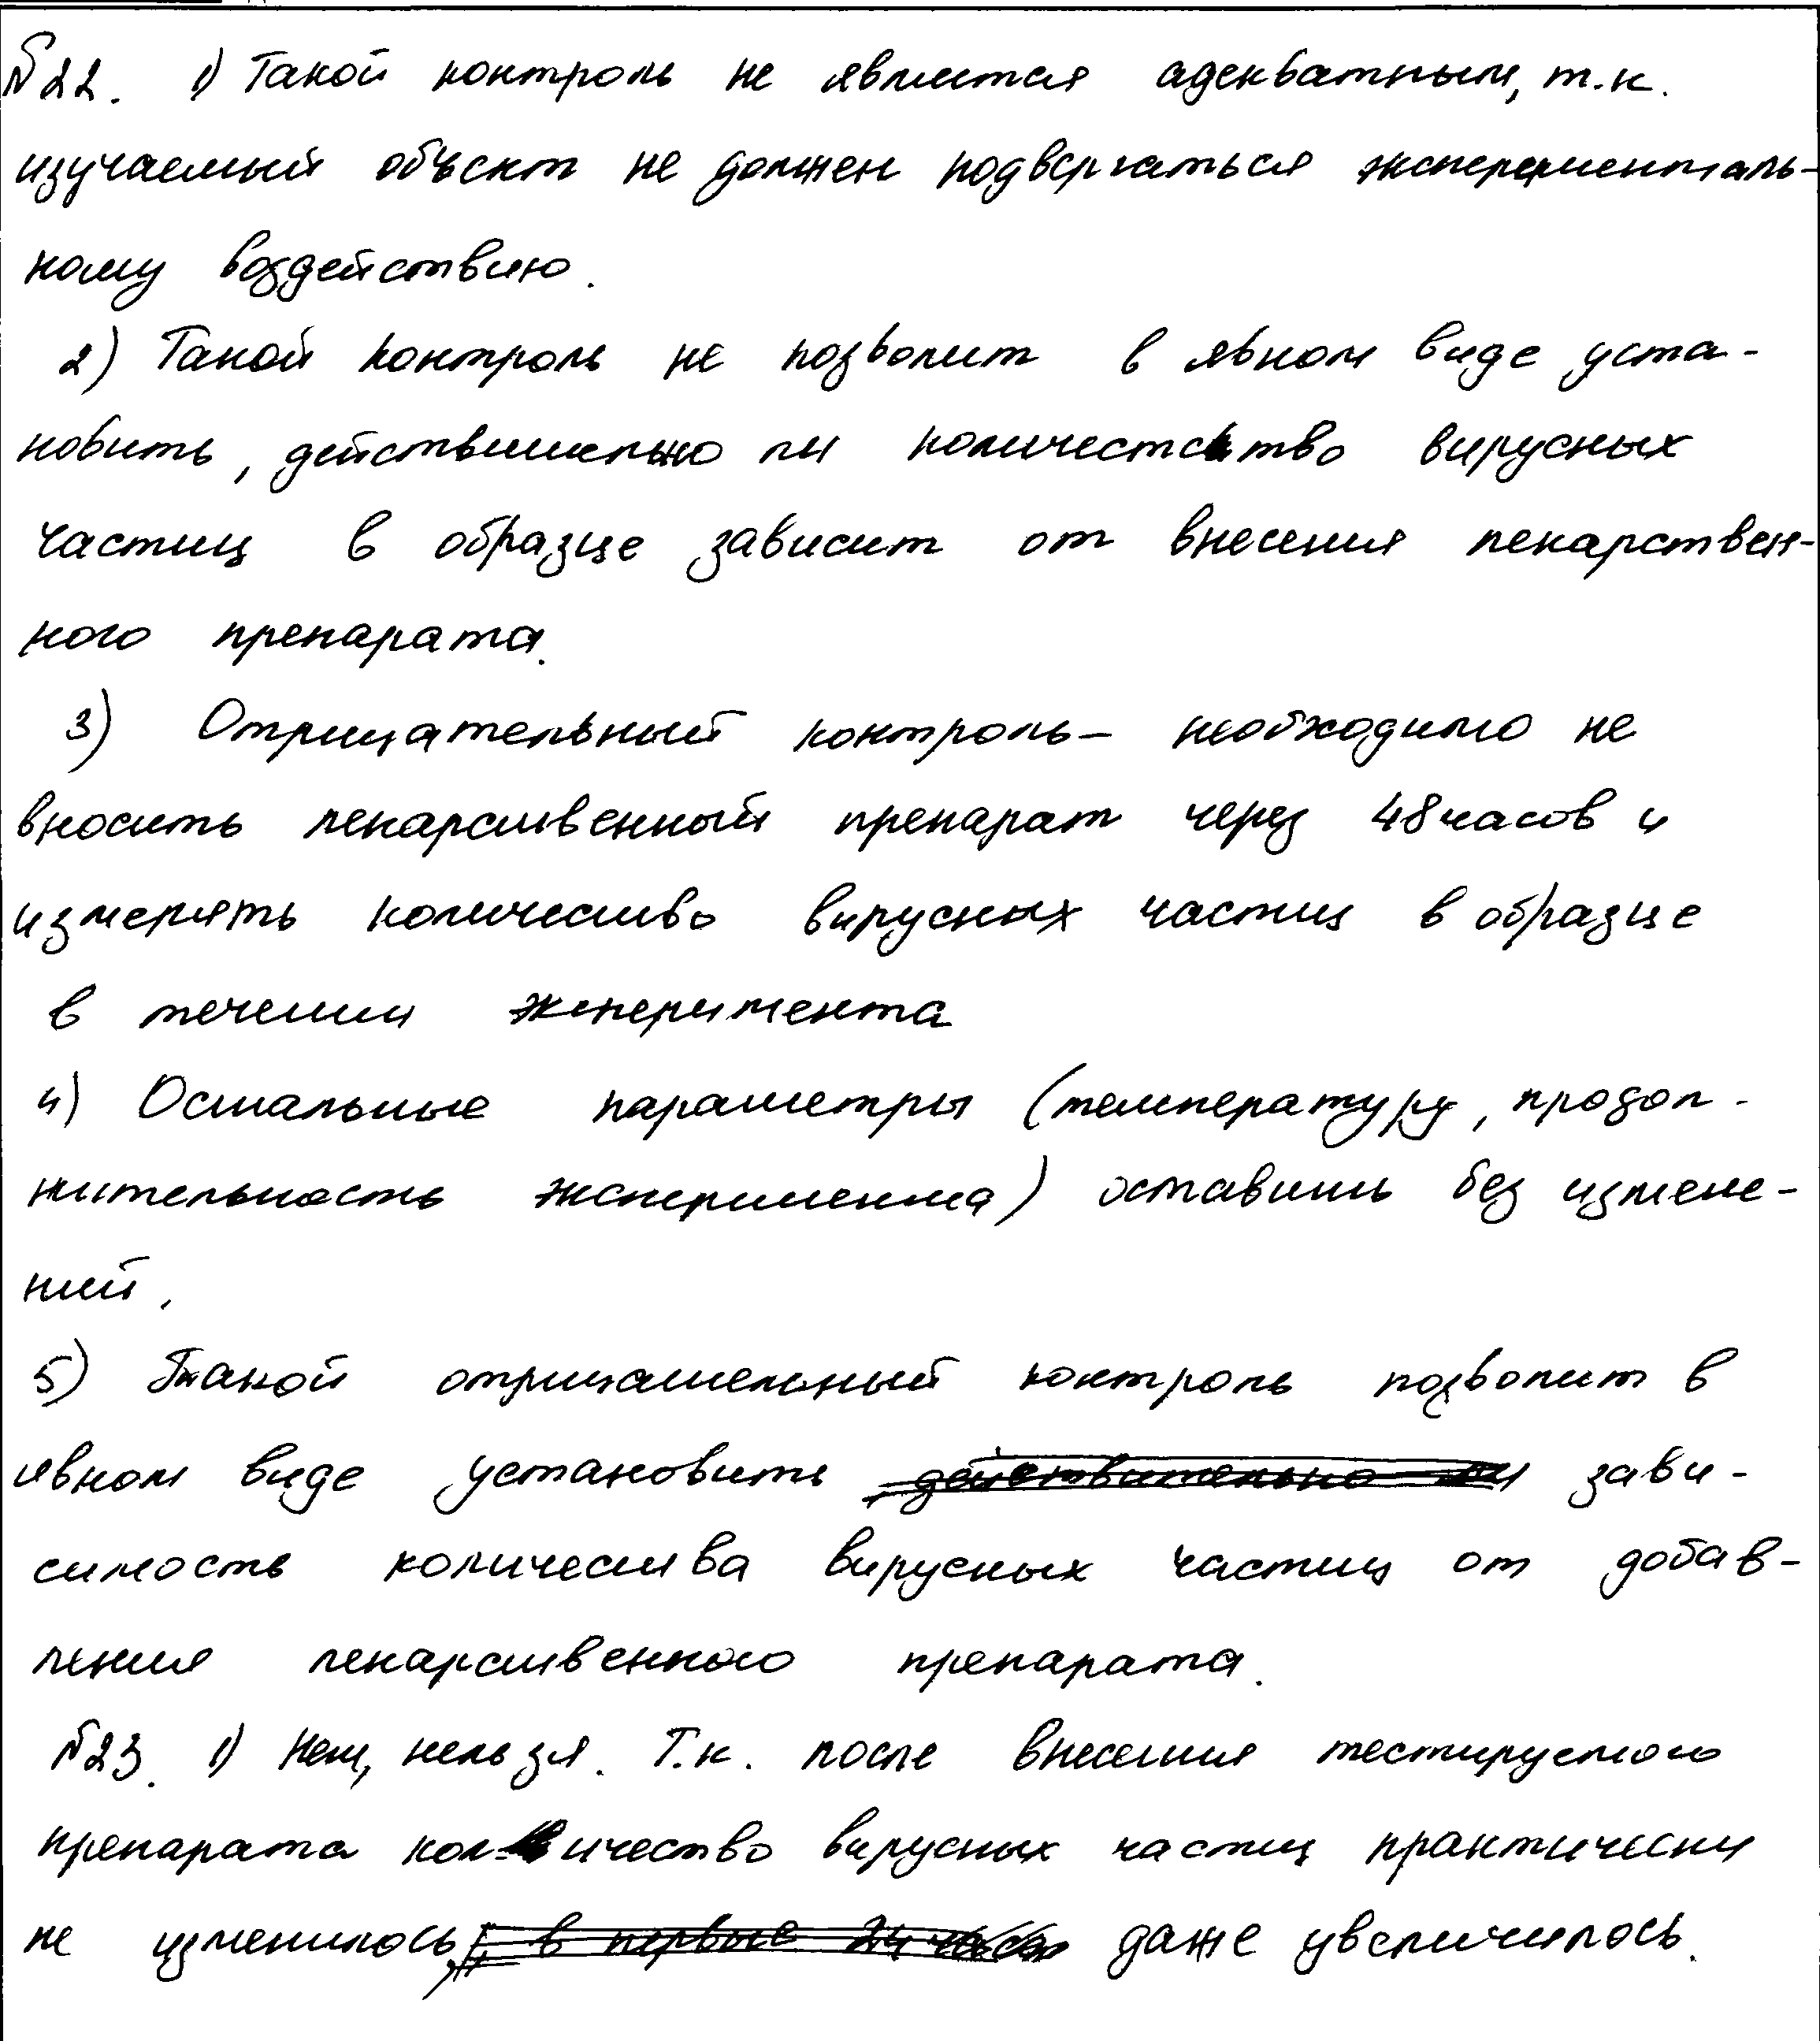 №22. 1) Такой контроль не является адекватным, т.к.
изучаемый объект не должен подвергаться эксперименталь-
ному воздействию.
2) Такой контроль не позволит в явном виде уста-
новить, действительно ли количество вирусных
частиц в образце зависит от внесения лекарствен-
ного препарата.
3) Отрицательный контроль – необходимо не
вносить лекарственный препарат через 48 часов и
измерять количество вирусных частиц в образце
в течении эксперимента
4) Остальные параметры (температуру, продол-
жительность эксперимента) оставить без измене-
ний.
5) Такой отрицательный контроль позволит в
явном виде установить зави-
симость количества вирусных частиц от добав-
ления лекарственного препарата.
№23. 1) Нет, нельзя. Т.к. после внесения тестируемого
препарата количество вирусных частиц практически
не изменилось, даже увеличилось.